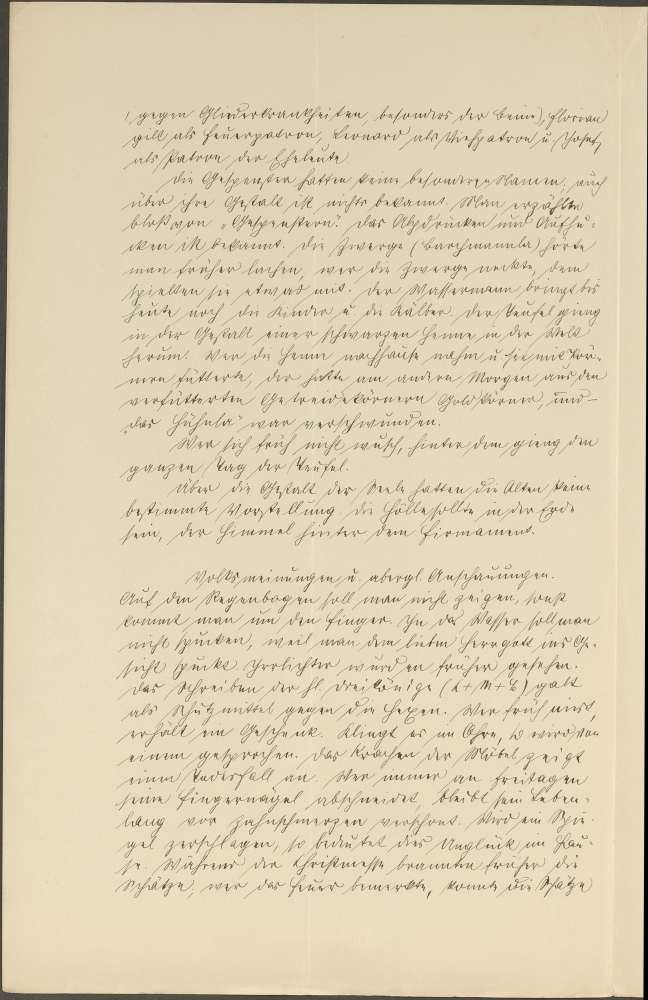 (gegen Gliederkrankheiten, besonders der Beine), Florian
gilt als Feuerpatron, Leonard als Viehpatron u. Josef
als Patron der Eheleute.
Die Gespenster hatten keine besonderen Namen, auch
über ihre Gestalt ist nichts bekannt. Man erzählte
bloß von „Gespenstern". Das Alpdrücken und Aufhu-
cken ist bekannt. Die Zwerge (Barchmannla) hörte
man früher lachen, wer die Zwerge neckte, dem
spielten sie etwas mit. Der Wassermann bringt bis
heute noch die Kinder u. die Kälber. Der Teufel gieng
in der Gestalt einer schwarzen Henne in der Welt
herum. Wer die Henne nachhause nahm u. sie mit Kör-
nern fütterte, der hatte am andern Morgen aus den
verfütterten Getreidekörnern Goldkörner, und –
„das Hühnla" war verschwunden.
Wer sich früh nicht wusch, hinter dem gieng den
ganzen Tag der Teufel.
Über die Gestalt der Seele hatten die Alten keine
bestimmte Vorstellung. Die Hölle sollte in der Erde
sein, der Himmel hinter dem Firmament.
Volksmeinungen u. abergl. Anschauungen.
Auf den Regenbogen soll man nicht zeigen, sonst
kommt man um den Finger. In das Wasser soll man
nicht spucken, weil man dem lieben Herrgott ins Ge-
sicht spuckt. Irrlichter wurden früher gesehen.
Das Schreiben der hl. Dreikönige (K+M+B) galt
als Schutzmittel gegen die Hexen. Wer früh niest,
erhält ein Geschenk. Klingt es im Ohre, so wird von
einem gesprochen. Das Krachen der Möbel zeigt
einen Todesfall an. Wer immer an Freitagen
seine Fingernägel abschneidet, bleibt sein Leben-
lang vor Zahnschmerzen verschont. Wird ein Spie-
gel zerschlagen, so bedeutet dies Unglück im Hau-
se. Während der Christmesse brannten früher die
Schätze, wer das Feuer bemerkte, konnte die Schätze